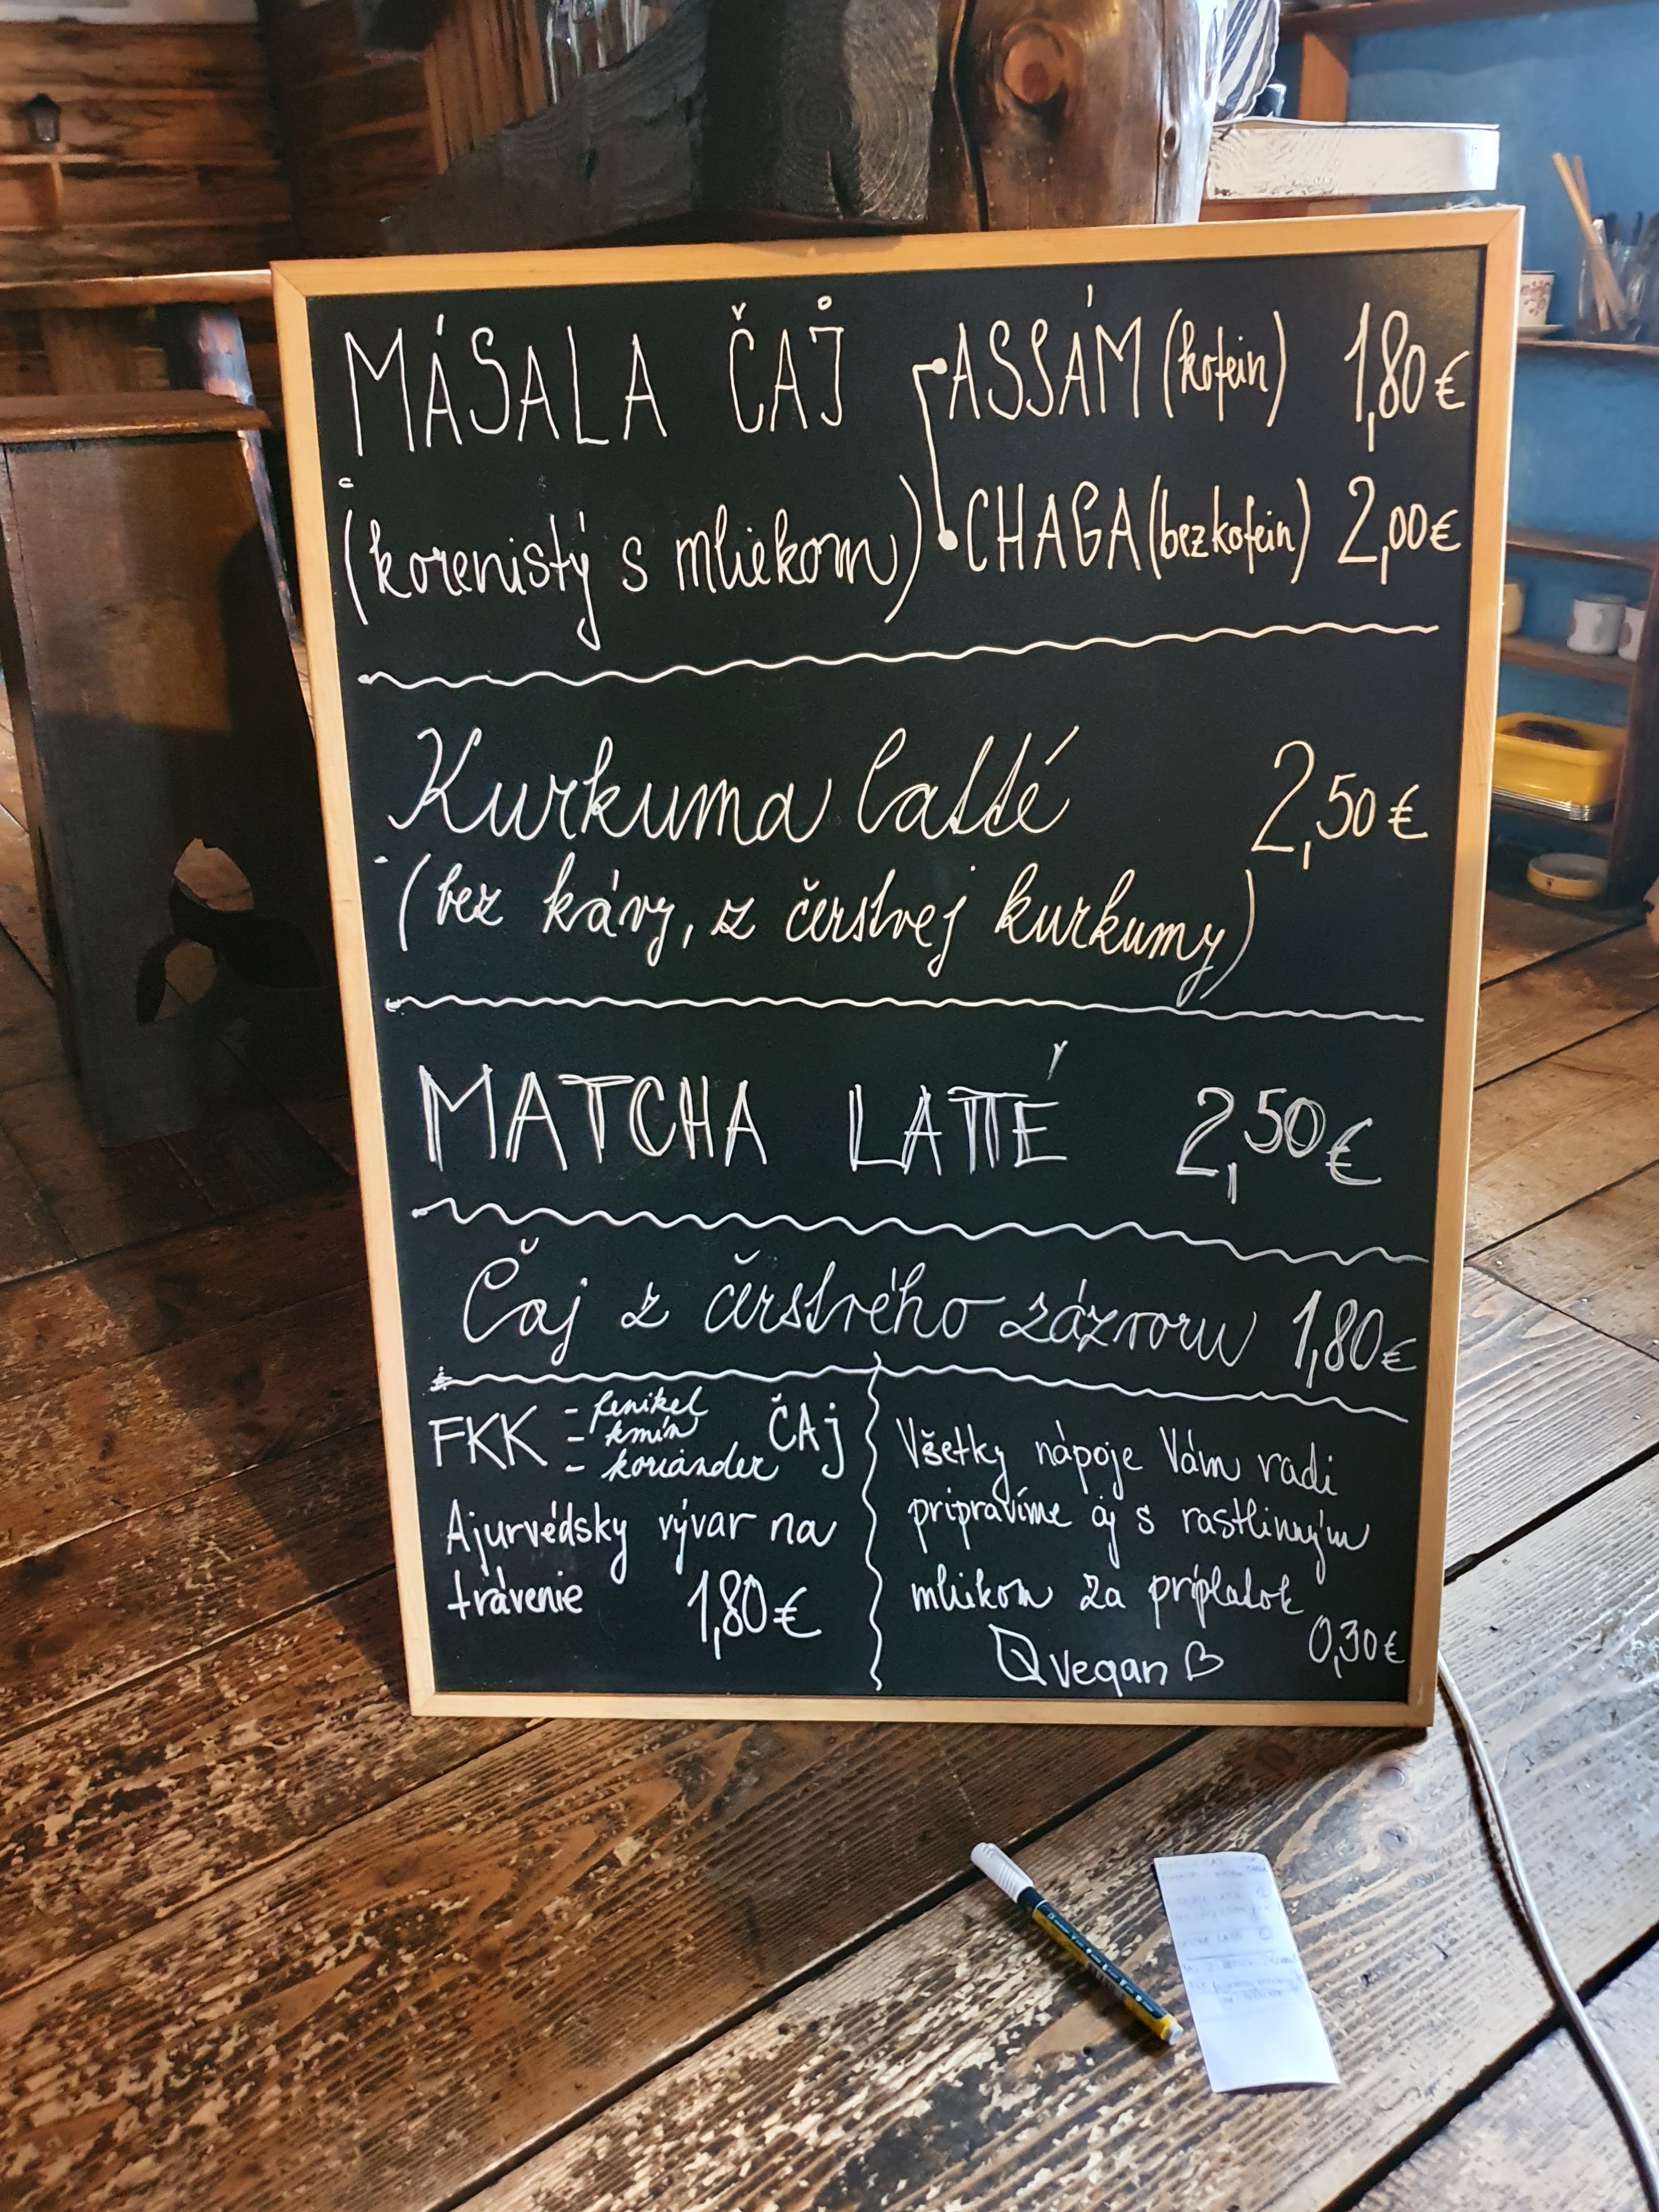 MÁSALA ČAJ
ASSÁM (kofein) 1,80€
(korenistý s mliekom)
CHAGA (bezkofein) 2,00€
Kurkuma latté 2,50€
(bez kávy, z čerstvej kurkumy)
MATCHA LATTÉ 2,50€
Čaj z čerstvého zázvoru 1,80€
FKK - fenikel
- kmín
- koriander
ČAj
Ajurvédsky vývar na
trávenie 1,80€
Všetky nápoje Vám radi
pripravíme aj s rastlinným
mliekom za príplatok
0,30€
vegan